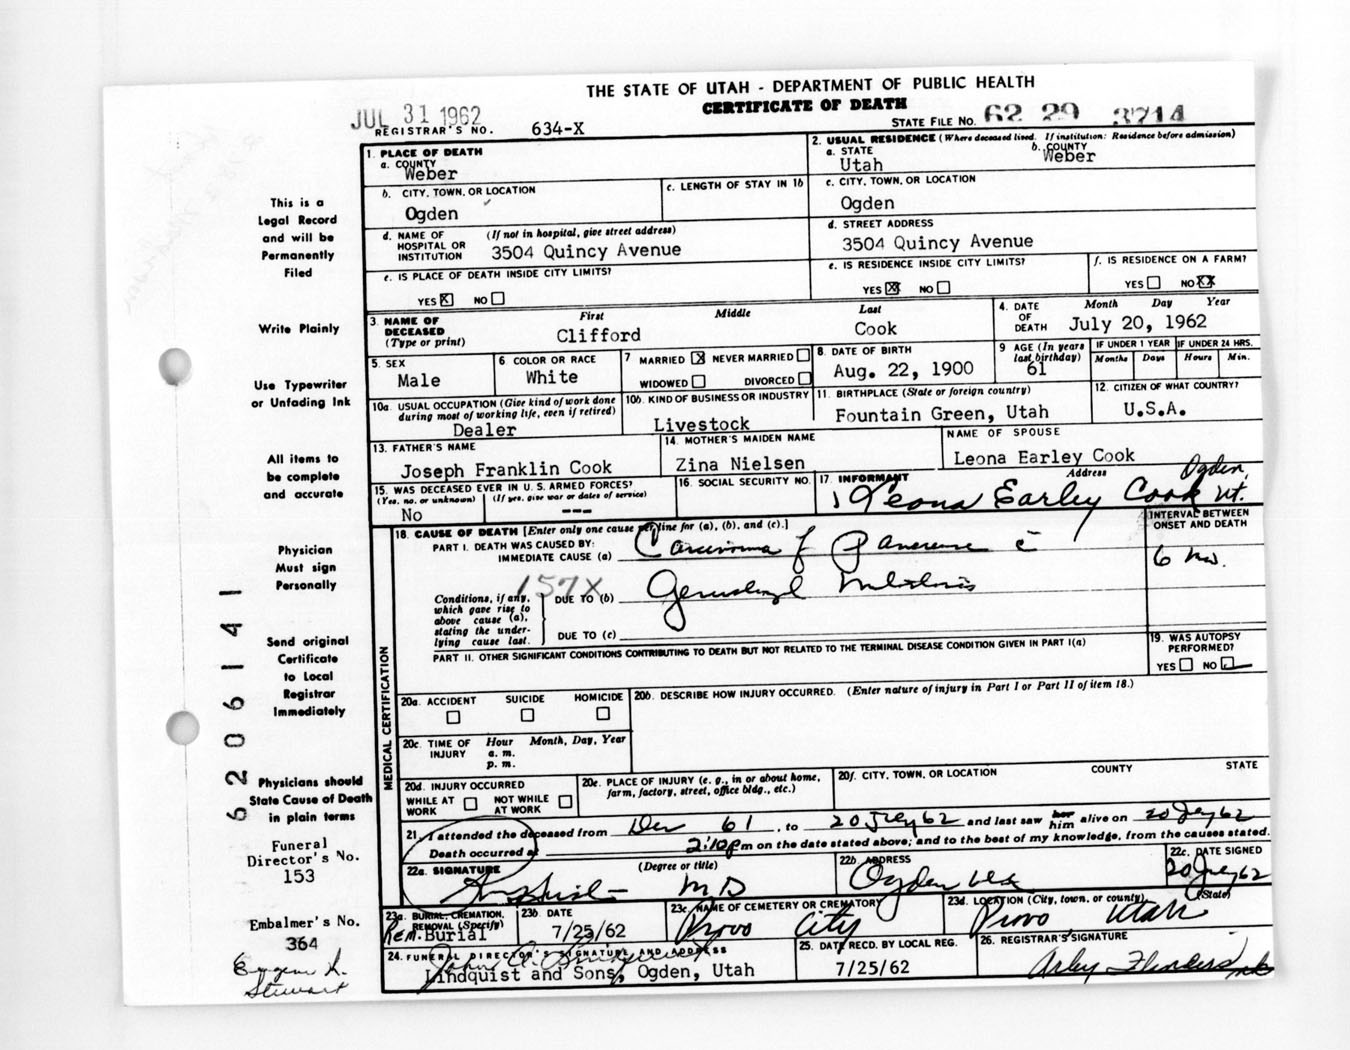 THE STATE OF UTAH - DEPARTMENT OF PUBLIC HEALTH
CERTIFICATE OF DEATH
JUL 31 1962
REGISTRAR'S NO. 634-X
STATE FILE NO. 62 29 3714
This is a
Legal Record
and will be
Permanently
Filed
Write Plainly
Use Typewriter
or Unfading Ink
All items to
be complete
and accurate
Physician
Must sign
Personally
Send original
Certificate
to Local
Registrar
Immediately
Physicians should
State Cause of Death
in plain terms
Funeral
Director's No.
153
Embalmer's No.
364
Eugene K.
Stewart
6206141
1. PLACE OF DEATH
a. COUNTY
Weber
2. USUAL RESIDENCE (Where deceased lived. If institution: Residence before admission)
a. STATE
Utah
b. COUNTY
Weber
b. CITY, TOWN, OR LOCATION
Ogden
c. LENGTH OF STAY IN 1b
c. CITY, TOWN, OR LOCATION
Ogden
d. NAME OF HOSPITAL OR INSTITUTION
(If not in hospital, give street address)
3504 Quincy Avenue
d. STREET ADDRESS
3504 Quincy Avenue
e. IS PLACE OF DEATH INSIDE CITY LIMITS?
YES X NO
e. IS RESIDENCE INSIDE CITY LIMITS?
YES X NO
f. IS RESIDENCE ON A FARM?
YES NO XX
3. NAME OF DECEASED (Type or print)
First Middle Last
Clifford Cook
4. DATE OF DEATH
Month Day Year
July 20, 1962
5. SEX
Male
6 COLOR OR RACE
White
7 MARRIED X NEVER MARRIED
WIDOWED DIVORCED
8. DATE OF BIRTH
Aug. 22, 1900
9 AGE (In years last birthday)
61
IF UNDER 1 YEAR
Months Days
IF UNDER 24 HRS.
Hours Min.
10a. USUAL OCCUPATION (Give kind of work done during most of working life, even if retired)
Dealer
10b. KIND OF BUSINESS OR INDUSTRY
Livestock
11. BIRTHPLACE (State or foreign country)
Fountain Green, Utah
12. CITIZEN OF WHAT COUNTRY?
U.S.A.
13. FATHER'S NAME
Joseph Franklin Cook
14. MOTHER'S MAIDEN NAME
Zina Nielsen
NAME OF SPOUSE
Leona Earley Cook
15. WAS DECEASED EVER IN U.S. ARMED FORCES?
(Yes, no, or unknown) (If yes, give war or dates of service)
No ---
16. SOCIAL SECURITY NO.
17. INFORMANT Address
Leona Earley Cook Ogden, Ut.
18. CAUSE OF DEATH [Enter only one cause per line for (a), (b), and (c).]
INTERVAL BETWEEN ONSET AND DEATH
PART I. DEATH WAS CAUSED BY:
IMMEDIATE CAUSE (a) Carcinoma of Pancreas c̄
6 mo.
157X
Conditions, if any, which gave rise to above cause (a), stating the underlying cause last.
DUE TO (b) Generalized Metastasis
DUE TO (c)
PART II. OTHER SIGNIFICANT CONDITIONS CONTRIBUTING TO DEATH BUT NOT RELATED TO THE TERMINAL DISEASE CONDITION GIVEN IN PART I(a)
19. WAS AUTOPSY PERFORMED?
YES NO
MEDICAL CERTIFICATION
20a. ACCIDENT SUICIDE HOMICIDE
20b. DESCRIBE HOW INJURY OCCURRED. (Enter nature of injury in Part I or Part II of item 18.)
20c. TIME OF INJURY
Hour Month, Day, Year
a. m.
p. m.
20d. INJURY OCCURRED
WHILE AT WORK NOT WHILE AT WORK
20e. PLACE OF INJURY (e. g., in or about home, farm, factory, street, office bldg., etc.)
20f. CITY, TOWN, OR LOCATION COUNTY STATE
21. I attended the deceased from Dec 61, to 20 July 62 and last saw her him alive on 20 July 62
Death occurred at 2:10 pm on the date stated above; and to the best of my knowledge, from the causes stated.
22a. SIGNATURE (Degree or title)
M D
22b. ADDRESS
Ogden Utah
22c. DATE SIGNED
20 July 62
23a. BURIAL, CREMATION, REMOVAL (Specify)
Rem. Burial
23b. DATE
7/25/62
23c. NAME OF CEMETERY OR CREMATORY
Provo City
23d. LOCATION (City, town, or county) (State)
Provo Utah
24. FUNERAL DIRECTOR'S SIGNATURE AND ADDRESS
Lindquist and Sons, Ogden, Utah
25. DATE RECD. BY LOCAL REG.
7/25/62
26. REGISTRAR'S SIGNATURE